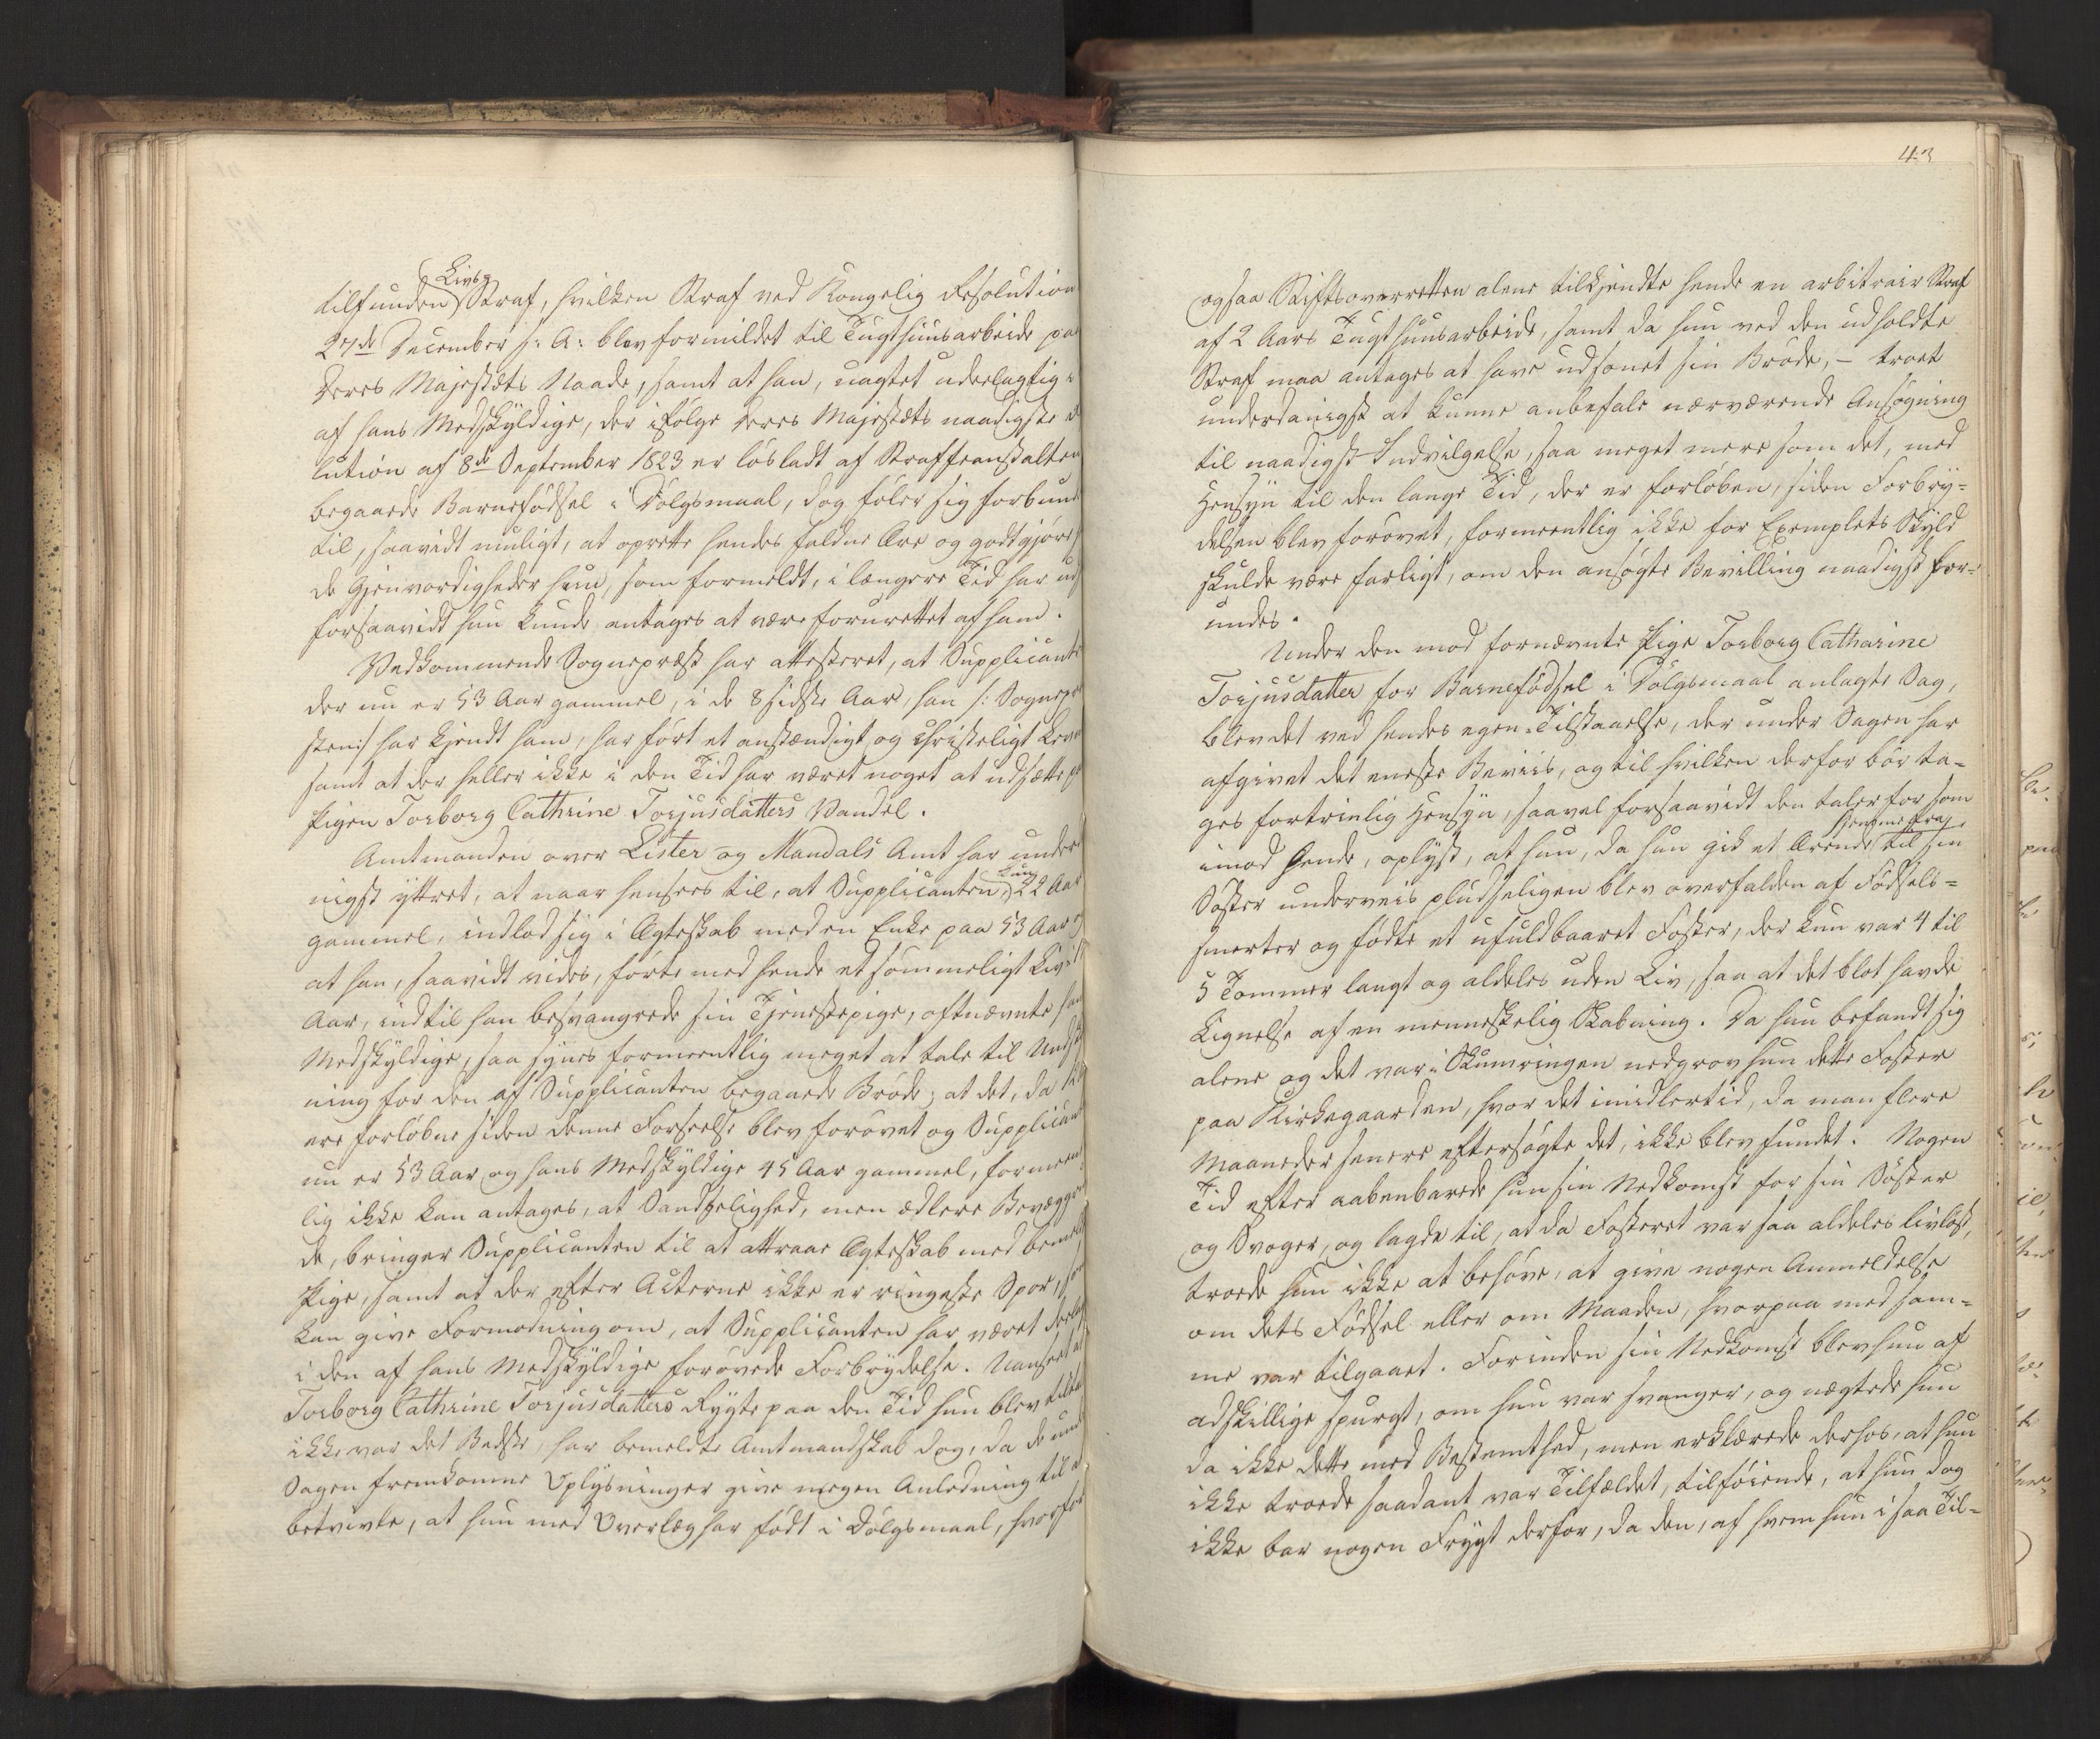 Livs
tilfunden Straf, hvilken Straf ved Kongelig Resolution
27de December s: A: blev formildet til Tugthuusarbeide paa
Deres Majestæts Naade, samt at han, uagtet udeelagtig i
af hans Medskyldige, der ifølge Deres Majestæts naadigste
lution af 8de September 1823 er løsladt af Straffeanstalten
begaaede Barnefødsel i Dølgsmaal, dog føler sig forbund
til, saavidt muligt, at oprette hendes faldne Ære og godtgjøre
de Gjenvordigheder hun, som formeldt, i længere Tid har
forsaavidt hun kunde antages at være forurettet af ham.
Vedkommende Sognepræst har attesteret, at Supplicanten
der nu er 53 Aar gammel, i de 8 sidste Aar, han /: Sognepræ
sten:/ har kjendt ham, har ført et anstændigt og christeligt Levnet
samt at der heller ikke i den Tid har været noget at udsætte paa
Pigen Torborg Cathrine Torjusdatters Vandel.
Amtmanden over Lister og Mandals Amt har underd
kun
nigst yttret, at naar hensees til, at Supplicanten, 22 Aar
gammel, indlod sig i Ægteskab med en Enke paa 53 Aar
at han, saavidt vides, førte med hende et sømmeligt Liv i
Aar, indtil han besvangrede sin Tjenestepige, oftnævnte hans
Medskyldige, saa synes formeentlig meget at tale til Undskyld
ning for den af Supplicanten begaaede Brøde; at det, da
ere forløbne siden denne Forseelse blev forøvet og Supplicanten
nu er 53 Aar og hans Medskyldige 45 Aar gammel, formeent
lig ikke kan antages, at Sandselighed, men ædlere Bevæggrun
de, bringer Supplicanten til at attraae Ægteskab med bemeldte
Pige, samt at der efter Acterne ikke er ringeste Spor, som
kan give Formodning om, at Supplicanten har været deelag
i den af hans Medskyldige forøvede Forbrydelse. Uanseet at
Torborg Cathrine Torjusdatters Rygte paa den Tid hun blev tiltalt
ikke var det Bedste, har bemeldte Amtmandskab dog, da de under
Sagen fremkomne Oplysninger give megen Anledning til at
betvivle, at hun med Overlæg har født i Dølgsmaal, hvorfor
43
ogsaa Stiftsoverretten alene tilkjendte hende en arbitrair Straf
af 2 Aars Tugthuusarbeide, samt da hun ved den udholdte
Straf maa antages at have udsonet sin Brøde, – troet
underdanigst at kunne anbefale nærværende Ansøgning
til naadigst Indvilgelse, saa meget mere som det, med
Hensyn til den lange Tid, der er forløben, siden Forbry-
delsen blev forøvet, formeentlig ikke for Exemplets Skyld
skulde være farligt, om den ansøgte Bevilling naadigst for-
undes.
Under den mod fornævnte Pige Torborg Catharine
Torjusdatter for Barnefødsel i Dølgsmaal anlagte Sag,
blev det ved hendes egen Tilstaaelse, der under Sagen har
afgivet det eneste Beviis, og til hvilken derfor bør ta-
ges fortrinlig Hensyn, saavel forsaavidt den taler for som
hjemmefra
imod hende, oplyst, at hun, da hun gik et Ærende til sin
Søster underveis pludseligen blev overfalden af Fødsels-
smerter og fødte et ufuldbaaret Foster, der kun var 4 til
5 Tommer langt og aldeles uden Liv, saa at det blot havde
Lignelse af en menneskelig Skabning. Da hun befandt sig
alene og det var i Skumringen nedgrov hun dette Foster
paa Kirkegaarden, hvor det imidlertid, da man flere
Maaneder senere eftersøgte det, ikke blev fundet. Nogen
Tid efter aabenbarede hun sin Nedkomst for sin Søster
og Svoger, og lagde til, at da Fosteret var saa aldeles livløst,
troede hun ikke at behøve, at give nogen Anmeldelse
om dets Fødsel eller om Maaden, hvorpaa med sam-
me var tilgaaet. Forinden sin Nedkomst blev hun af
adskillige spurgt, om hun var svanger, og nægtede hun
da ikke dette med Bestemthed, men erklærede derhos, at hun
ikke troede saadant var Tilfældet, tilføiende, at hun dog
ikke bar nogen Frygt derfor, da den, af hvem hun i saa Til-